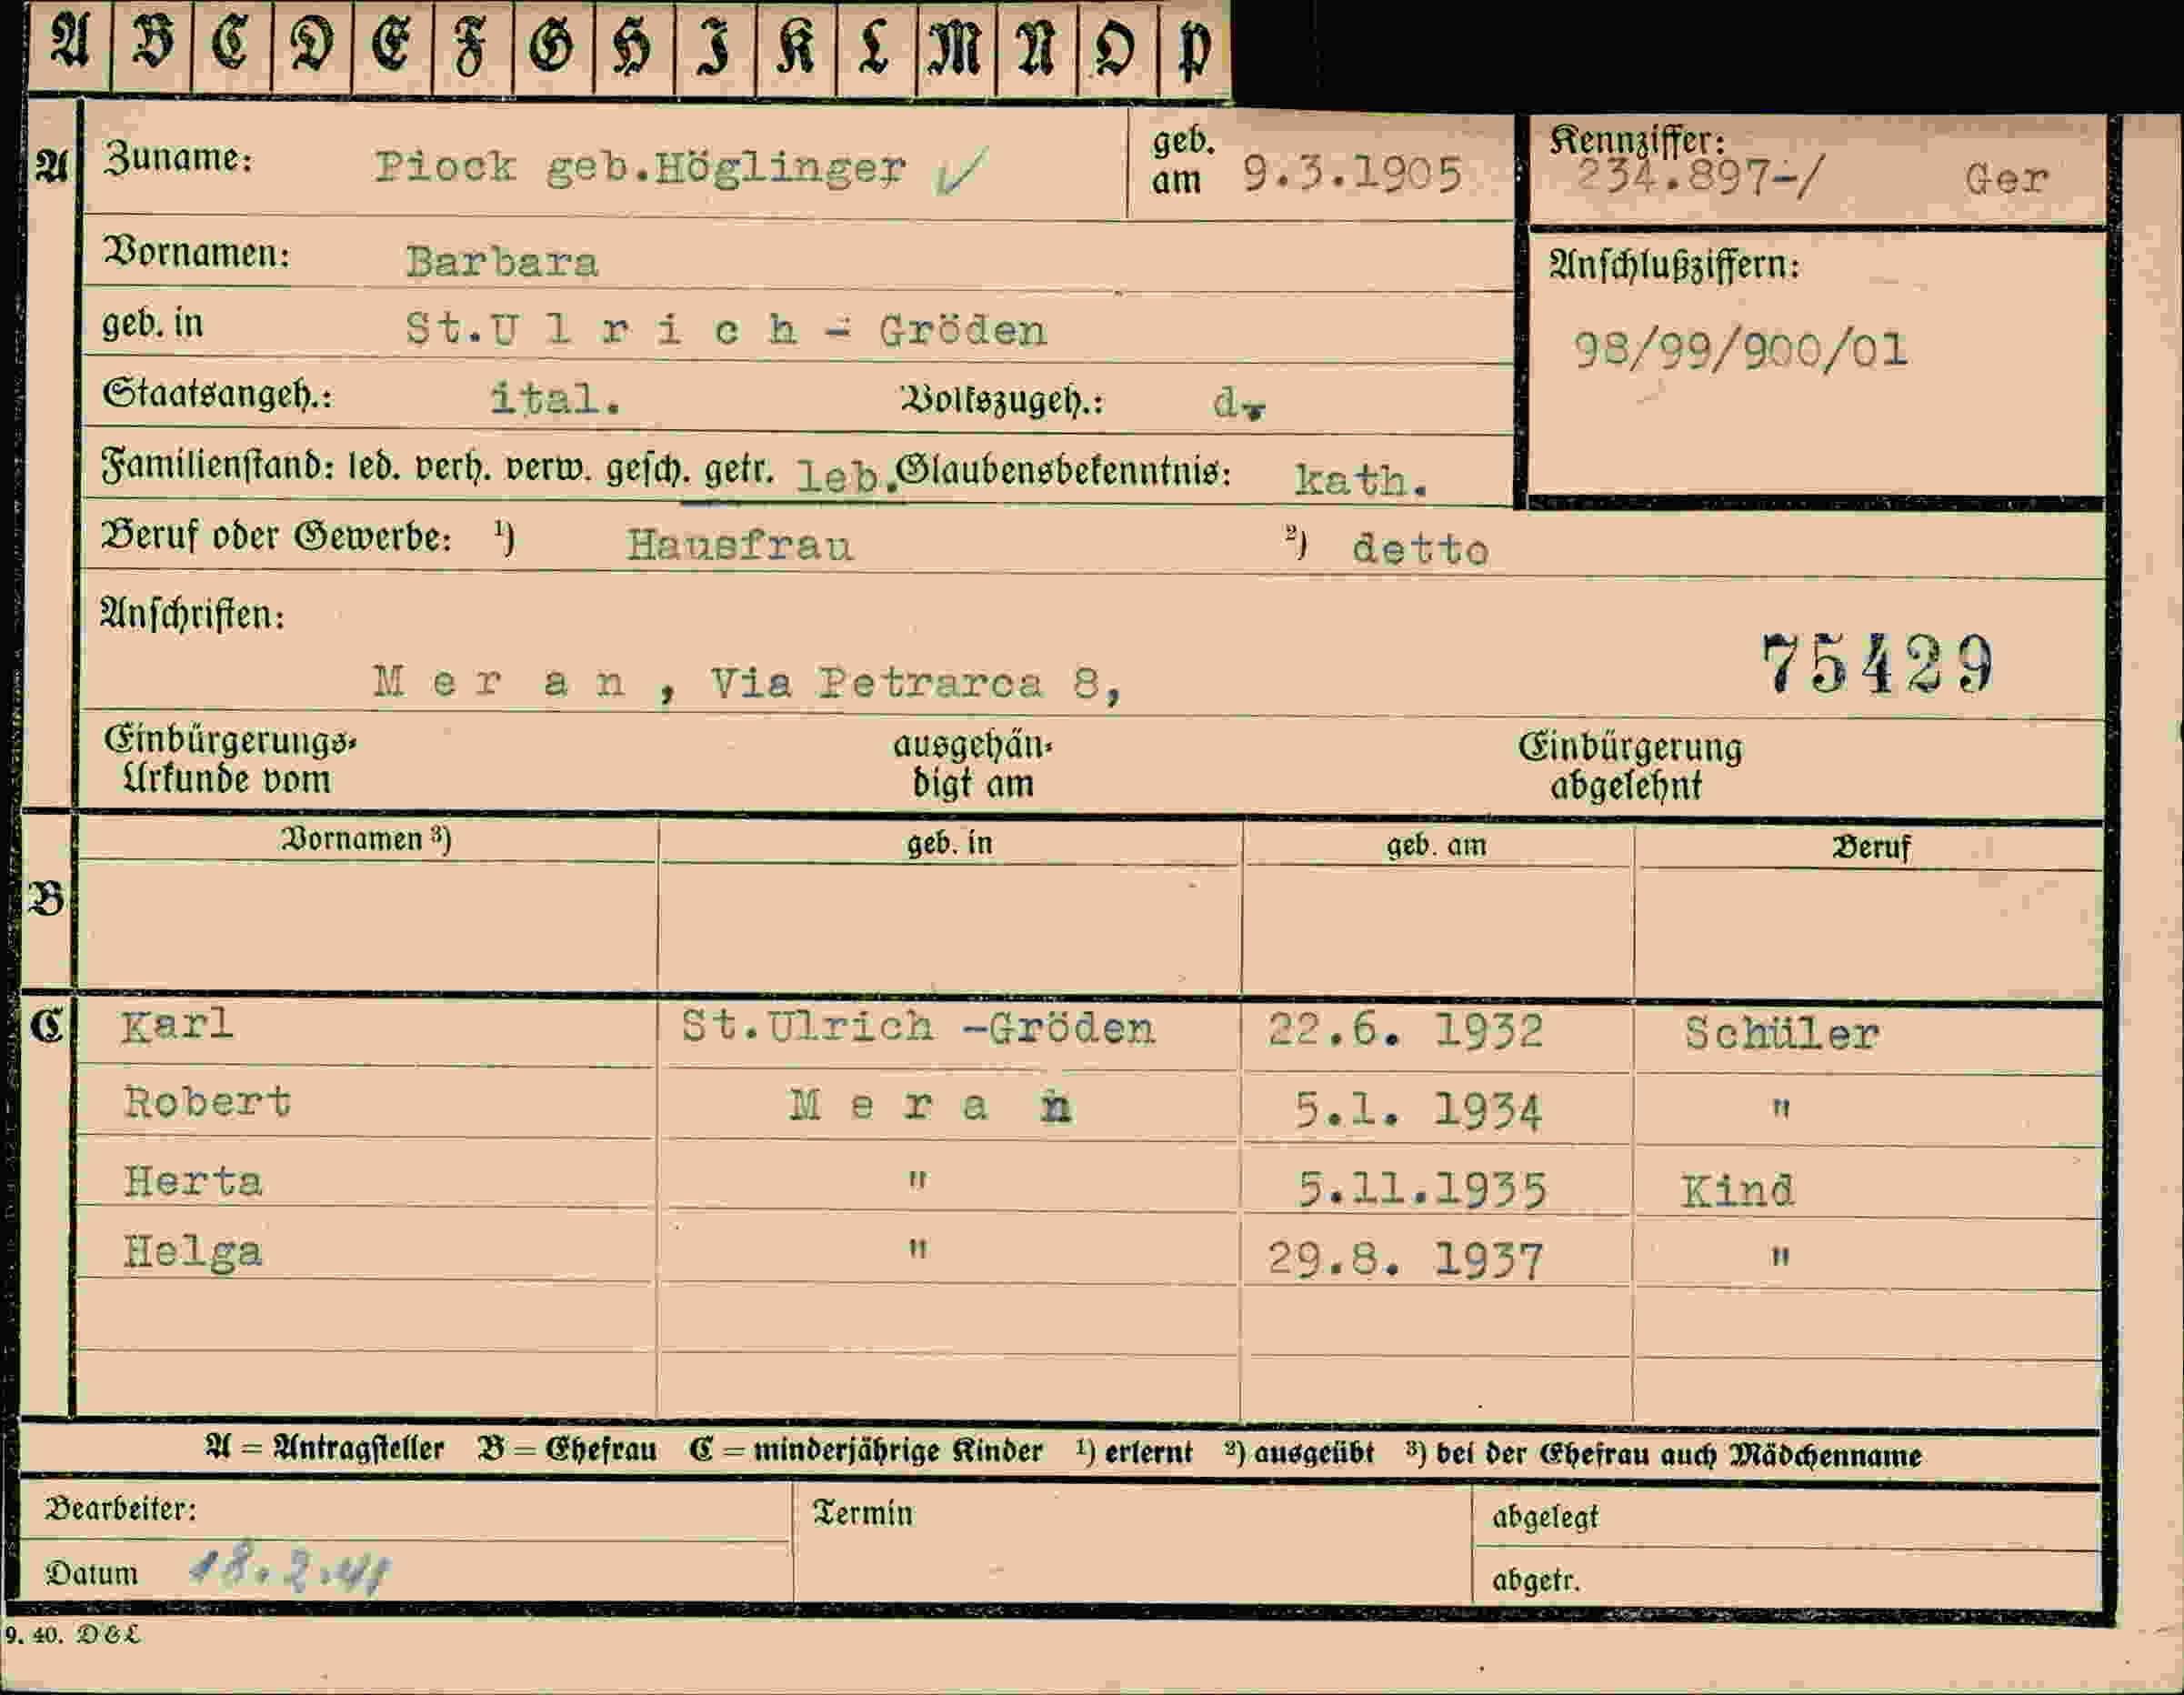 A B C D E F G H I K L M N O P
A Zuname: Piock geb.Höglinger ✓ geb. am 9.3.1905 Kennziffer: 234.897-/ Ger
Vornamen: Barbara
Anschlußziffern:
geb. in St.U l r i c h - Gröden
98/99/900/01
Staatsangeh.: ital. Volkszugeh.: d.
Familienstand: led. verh. verw. gesch. getr. leb. Glaubensbekenntnis: kath.
Beruf oder Gewerbe: ¹) Hausfrau ²) detto
Anschriften:
75429
M e r a n , Via Petrarca 8,
Einbürgerungs- ausgehän- Einbürgerung
Urkunde vom digt am abgelehnt
Vornamen ³) geb. in geb. am Beruf
B
C Karl St.Ulrich -Gröden 22.6. 1932 Schüler
Robert M e r a n 5.1. 1934 "
Herta " 5.11.1935 Kind
Helga " 29.8. 1937 "
A = Antragsteller B = Ehefrau C = minderjährige Kinder ¹) erlernt ²) ausgeübt ³) bei der Ehefrau auch Mädchenname
Bearbeiter: Termin abgelegt
Datum 18.2.41 abgetr.
9. 40. DEL